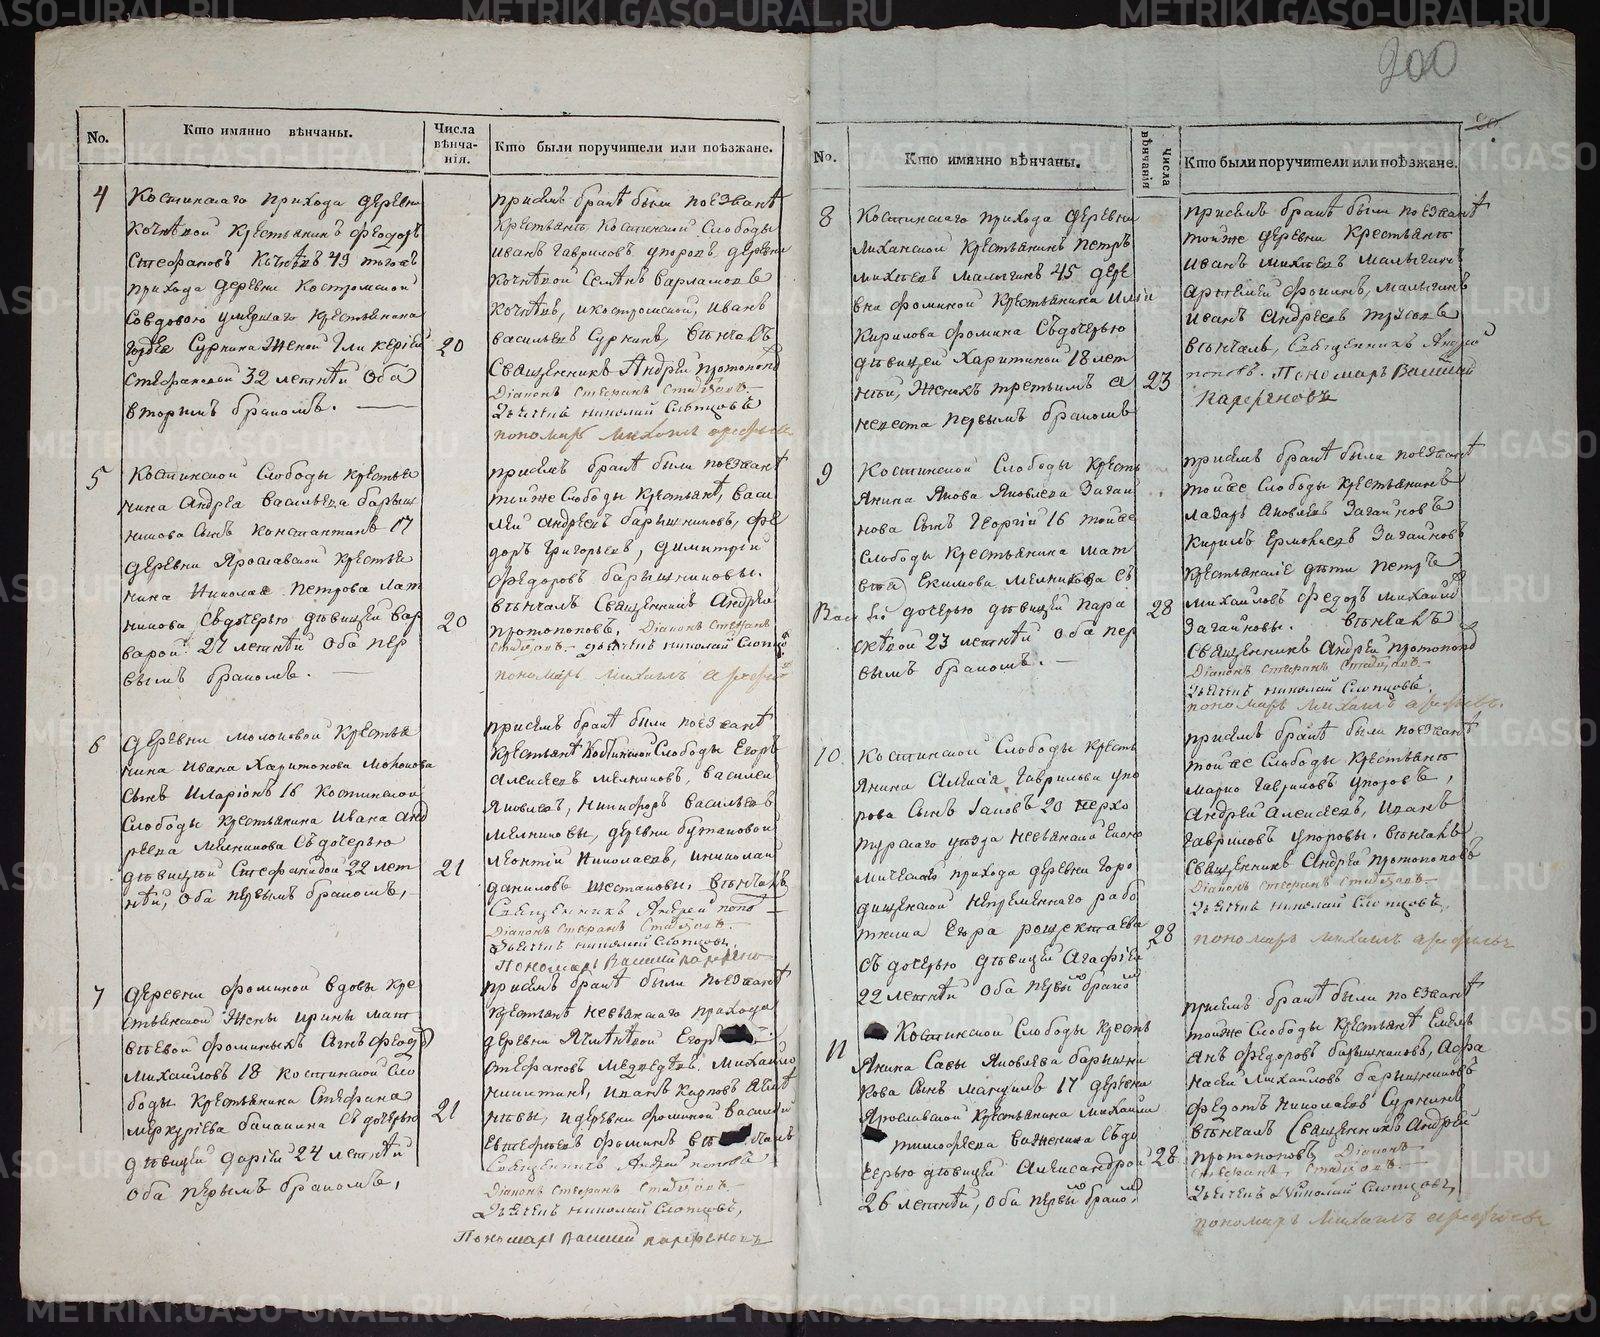 No.
Кто имянно вѣнчаны.
Числа вѣнча-нія.
Кто были поручители или поѣзжане.
4
Костинскаго прихода деревни
Кочнѣвой крестьянинъ Феодоръ
Стефановъ Кочнѣвъ 49 тогожъ
прихода деревни Костромской
Совдовою умершаго крестьянина
Суркина Женой Гликеріей
Стефановой 32 лѣтнѣй Оба
вторымъ бракомъ.
20
присемъ бракѣ были поезжанѣ
Крестьянѣ Костинской Слободы
Иванъ Гавриловъ Упоровъ деревни
Кочнѣвой Семенъ Варламовъ
Кочнѣвъ, икостромской, Иванъ
Васильевъ Суркинъ, вѣнчалъ
Священникъ Андрей Протопопо
Діаконъ Стефанъ
Дьячекъ Николай Слотцовъ
пономарь Михаилъ Арефьевъ
5
Костинской Слободы крестья
нина Андрея Васильева барыш
никова Сынъ Константинъ 17
деревни Ярославской крестья
нина Николая Петрова Лат
никова Съдочерью дѣвицей Вар
варой 27 лѣтнѣй Оба пер
вымъ бракомъ.
20
присемъ бракѣ были поезжанѣ
тойже Слободы крестьянѣ, Васи
лей Андреевъ барышниковъ, Фе
доръ Григорьевъ, Димитрій
Федоровъ барышниковы.
вѣнчалъ Священникъ Андрей
Протопоповъ. Діаконъ Стефанъ
дьячекъ Николай Слотцо
пономарь Михаилъ Арефье
6
деревни Молоковой крестья
нина Ивана Харитонова Молокова
Сынъ Иларіонъ 16 Костинской
Слободы крестьянина Ивана Анд
реева Мелникова Съдочерью
дѣвицей Стефанидой 22 лѣт
нѣй, Оба первымъ бракомъ,
21
присемъ бракѣ были поезжанѣ
крестьянѣ Костинской Слободы Егоръ
Алексеевъ Мелниковъ, Василей
Яковлевъ, Никифоръ Васильевъ
Мелниковы, деревни бутаковой
Леонтій Николаевъ, иниколай
Даниловъ Шестаковы, вѣнчалъ
Священникъ Андрей попо
Діаконъ Стефанъ
Дьячекъ Николай Слотцовъ,
Пономарь Василій
7
деревни Фоминой вдовы кре
стьянской Жены Ирины Мат
вѣевой Фоминыхъ Сынъ Феод
Михайловъ 18 Костинской Сло
боды крестьянина Стефана
Меркуріева бабакина Съдочерью
дѣвицей Даріей 24 лѣтнѣй
Оба первымъ бракомъ,
21
присемъ бракѣ были поезжанѣ
крестьянѣ невьянскаго прихода
деревни Ячменевой Егор
Стефановъ Медведевъ, Михайло
Никитинъ, Иванъ Карповъ
идеревни Фоминой Василей
Евстефѣевъ Фоминъ
Священникъ Андрей попов
Діаконъ Стефанъ
Дьячекъ Николай Слотцовъ,
Пономарь Василій Парфеновъ
200
No.
Кто имянно вѣнчаны.
Числа вѣнчанія
Кто были поручители или поѣзжане.
8
Костинскаго прихода деревни
Лиханской крестьянинъ Петръ
Михеевъ Малыгинъ 45 дере
вни Фоминой крестьянина Ильи
Кирилова Фомина Съдочерью
дѣвицей Харитиной 18 лѣт
нѣй, Женихъ третьимъ а
невеста первымъ бракомъ
23
присемъ бракѣ были поезжанѣ
тойже деревни крестьянѣ
Иванъ Михеевъ Малыгинъ
Артемей Фокинъ, Малыгинъ
Иванъ Андреевъ Трусовъ
вѣнчалъ, Священникъ Андрей
поповъ. Пономарь Василій
Парфеновъ
9
Костинской Слободы кресть
янина Якова Яковлева Загай
нова Сынъ Георгій 16 тойже
Слободы крестьянина Мат
вѣя Екимова Мелникова съ
дочерью дѣвицей Пара
скевой 23 лѣтнѣй Оба пер
вымъ бракомъ.
28
присемъ бракѣ были поезжанѣ
тойже Слободы крестьянинъ
Лазарь Яковлевъ Загайновъ
Кирилъ Ермолаевъ Загайновъ
крестьянскіе дѣти Петръ
Михайловъ Федоръ Михайло
Загайновы. вѣнчалъ
Священникъ Андрей Протопопо
Діаконъ Стефанъ
Дьячекъ Николай Слотцовъ.
пономарь Михаилъ Арефьевъ.
10
Костинской Слободы кресть
янина Алексея Гаврилова Упо
рова Сынъ Іаковъ 20 верхо
турскаго уѣзда невьянской
прихода деревни Горо
дищенской непременнаго рабо
тника Егора
Съдочерью дѣвицей Агафіей
22 лѣтнѣй Оба первы брако
28
присемъ бракѣ были поезжанѣ
тойже Слободы крестьянѣ
Марко Гавриловъ Упоровъ,
Андрей Алексеевъ, Иванъ
Гавриловъ Упоровы. вѣнчалъ
Священникъ Андрей Протопоповъ
Діаконъ Стефанъ
Дьячекъ Николай Слотцовъ,
пономарь Михаилъ Арефьевъ
11
Костинской Слободы кресть
янина Савы Яковлева барышни
кова Сынъ Максимъ 17 деревни
Ярославской крестьянина Михаила
Тимофеева Съдо
черью дѣвицей Александрой
26 лѣтнѣй, Оба первы брако
28
присемъ бракѣ были поезжанѣ
тойже Слободы крестьянѣ Емель
янъ Федоровъ барышниковъ, Афа
насей Михайловъ барышниковъ
Федотъ Николаевъ Суркинъ
вѣнчалъ Священникъ Андрей
Протопоповъ Діаконъ
Стефанъ
Дьячекъ Николай Слотцовъ,
пономарь Михаилъ Арефьевъ
METRIKI.GASO-URAL.RU